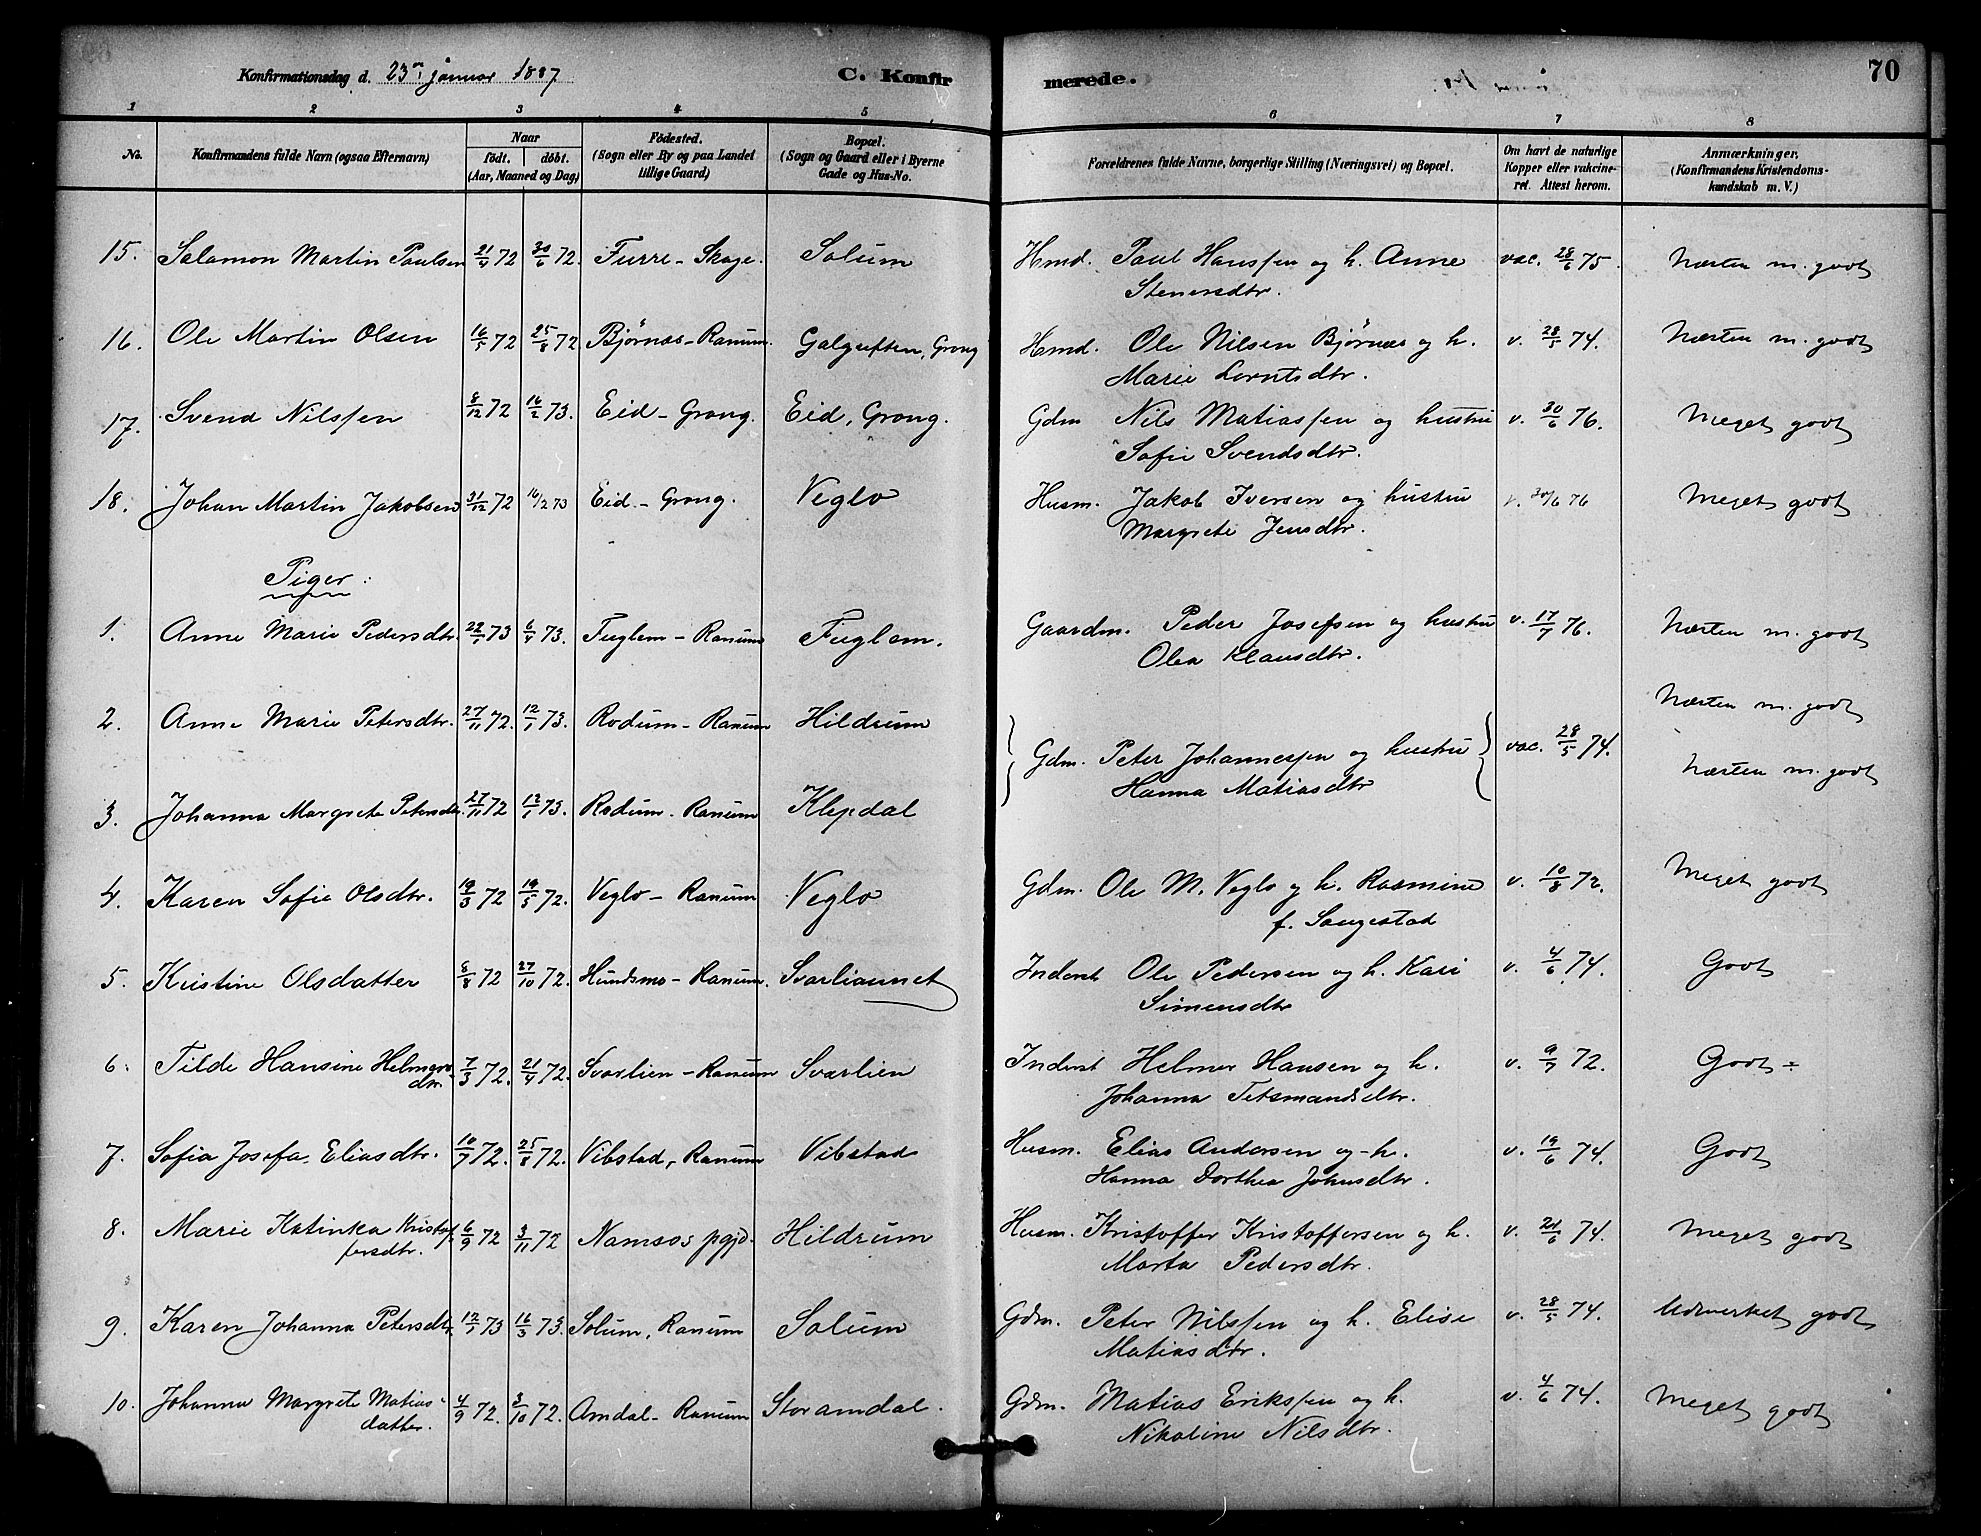 Konfirmationsdag d. 23de januar 1887 C. Konfirmerede. 70
1 2 3 4 5 6 7 8
No. Konfirmandens fulde Navn (ogsaa Efternavn) Naar født. døbt. (Aar, Maaned og Dag) Fødested. (Sogn eller By og paa Landet tillige Gaard) Bopæl. (Sogn og Gaard eller i Byerne Gade og Hus-No. Forældrenes fulde Navne, borgerlige Stilling (Næringsvei) og Bopæl. Om havt de naturlige Kopper eller vakcineret. Attest herom. Anmærkninger. (Konfirmandens Kristendomskundskab m. V.)
15. Salamon Martin Paulsen 21/4 72 30/6 72. Furre - Skage. Solum Hmd. Paul Hanssen og h. Anne vac. 28/6 75. Næsten m. godt
Stenersdtr.
16. Ole Martin Olsen 16/5 72 25/8 72 Bjørnes - Ranum. Galguften, Grong Hmd. Ole Nilsen Bjørnes og h. v. 28/5 74. Næsten m. godt
Marie Lorntsdtr.
17. Svend Nilssen 8/12 72 16/2 73. Eid - Grong. Eid, Grong. Gdm Nils Matiassen og hustru v. 30/6 76. Meget godt
Sofie Svendsdtr.
18. Johan Martin Jakobsen 31/12 72 16/2 73 Eid - Grong. Veglo Husm. Jakob Iversen og hustru v. 30/6 76 Meget godt
Margrete Jensdtr.
Piger:
1. Anne Marie Pedersdtr. 22/1 73 6/4 73. Fuglem - Ranum Fuglem. Gaardm. Peder Josefsen og hustru v. 17/7 76. Næsten m. godt
Olea Klausdtr.
2. Anne Marie Petersdtr. 27/11 72. 12/1 73. Rodum - Ranum Hildrum Næsten m. godt
Gdm. Peter Johannessen og hustru vac. 28/5 74.
Hanna Matiasdtr
3. Johanna Margrete Petersdtr. 27/11 72 12/1 73. Rodum - Ranum Klepdal Næsten m. godt
4. Karen Sofie Olsdtr. 19/3 72 19/5 72. Veglo - Ranum Veglo Gdm. Ole M. Veglo og h. Rasmine v. 10/8 72. Meget godt
f. Sangestad
5. Kristine Olsdatter 8/8 72 27/10 72. Hundsmo - Ranum. Svarliaunet Inderst Ole Pedersen og h. Kari v. 4/6 74. Godt
Simensdtr
6. Tilde Hansine Helmersdtr. 7/3 72. 21/4 72. Svarlien - Ranum Svarlien Inderst Helmer Hansen og h. v. 9/7 72. Godt ÷
Johanna Titsmandsdtr.
7. Sofia Josefa Eliasdtr. 10/7 72. 25/8 72. Vibstad, Ranum Vibstad Husm. Elias Andersen og h. v. 19/6 74. Godt
Hanna Dorthea Johnsdtr.
8. Marie Katinka Kristoffersdtr. 6/9 72 3/11 72 Namsos pgjd. Hildrum Husm. Kristoffer Kristoffersen og h. v. 21/6 74. Meget godt
Marta Pedersdtr.
9. Karen Johanna Petersdtr. 12/1 73 16/3 73. Solum, Ranum Solum Gdm. Peter Nilssen og h. Elise v. 28/5 74. Udmerket godt
Matiasdtr.
10. Johanna Margrete Matiasdatter. 4/9 72. 3/10 72. Amdal - Ranum Storamdal. Gdm. Matias Erikssen og h. v. 4/6 74. Meget godt
Nikoline Nilsdtr.